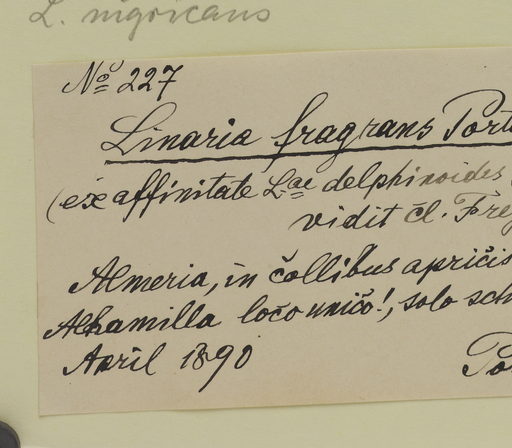 L. nigricans
No 227
Linaria fragrans Port
(ex affinitate L.ae delphinoides
vidit cl. Frey
Almeria, in collibus apricis
Alhamilla loco unico!, solo sch
April 1890
Po